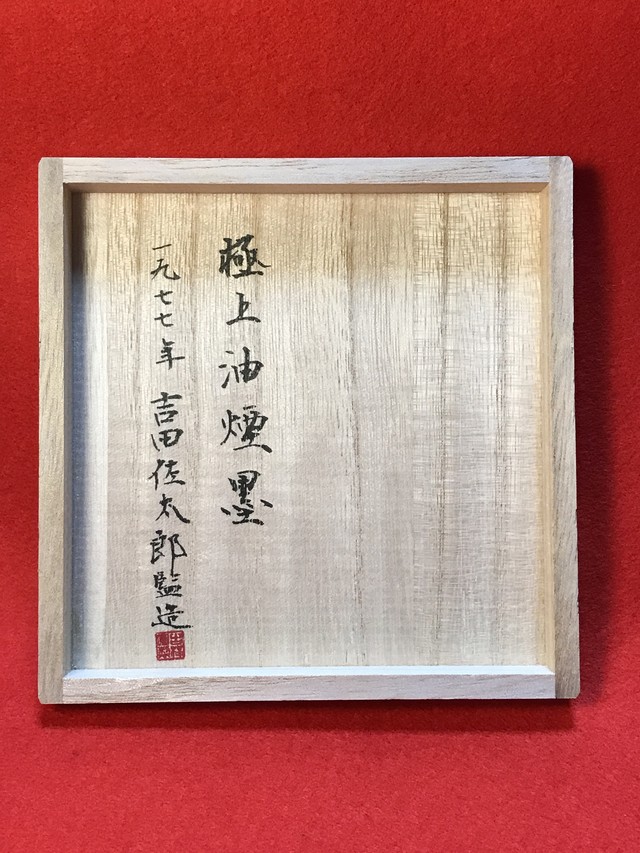 極上油煙墨
一九七七年 吉田佐太郎監造